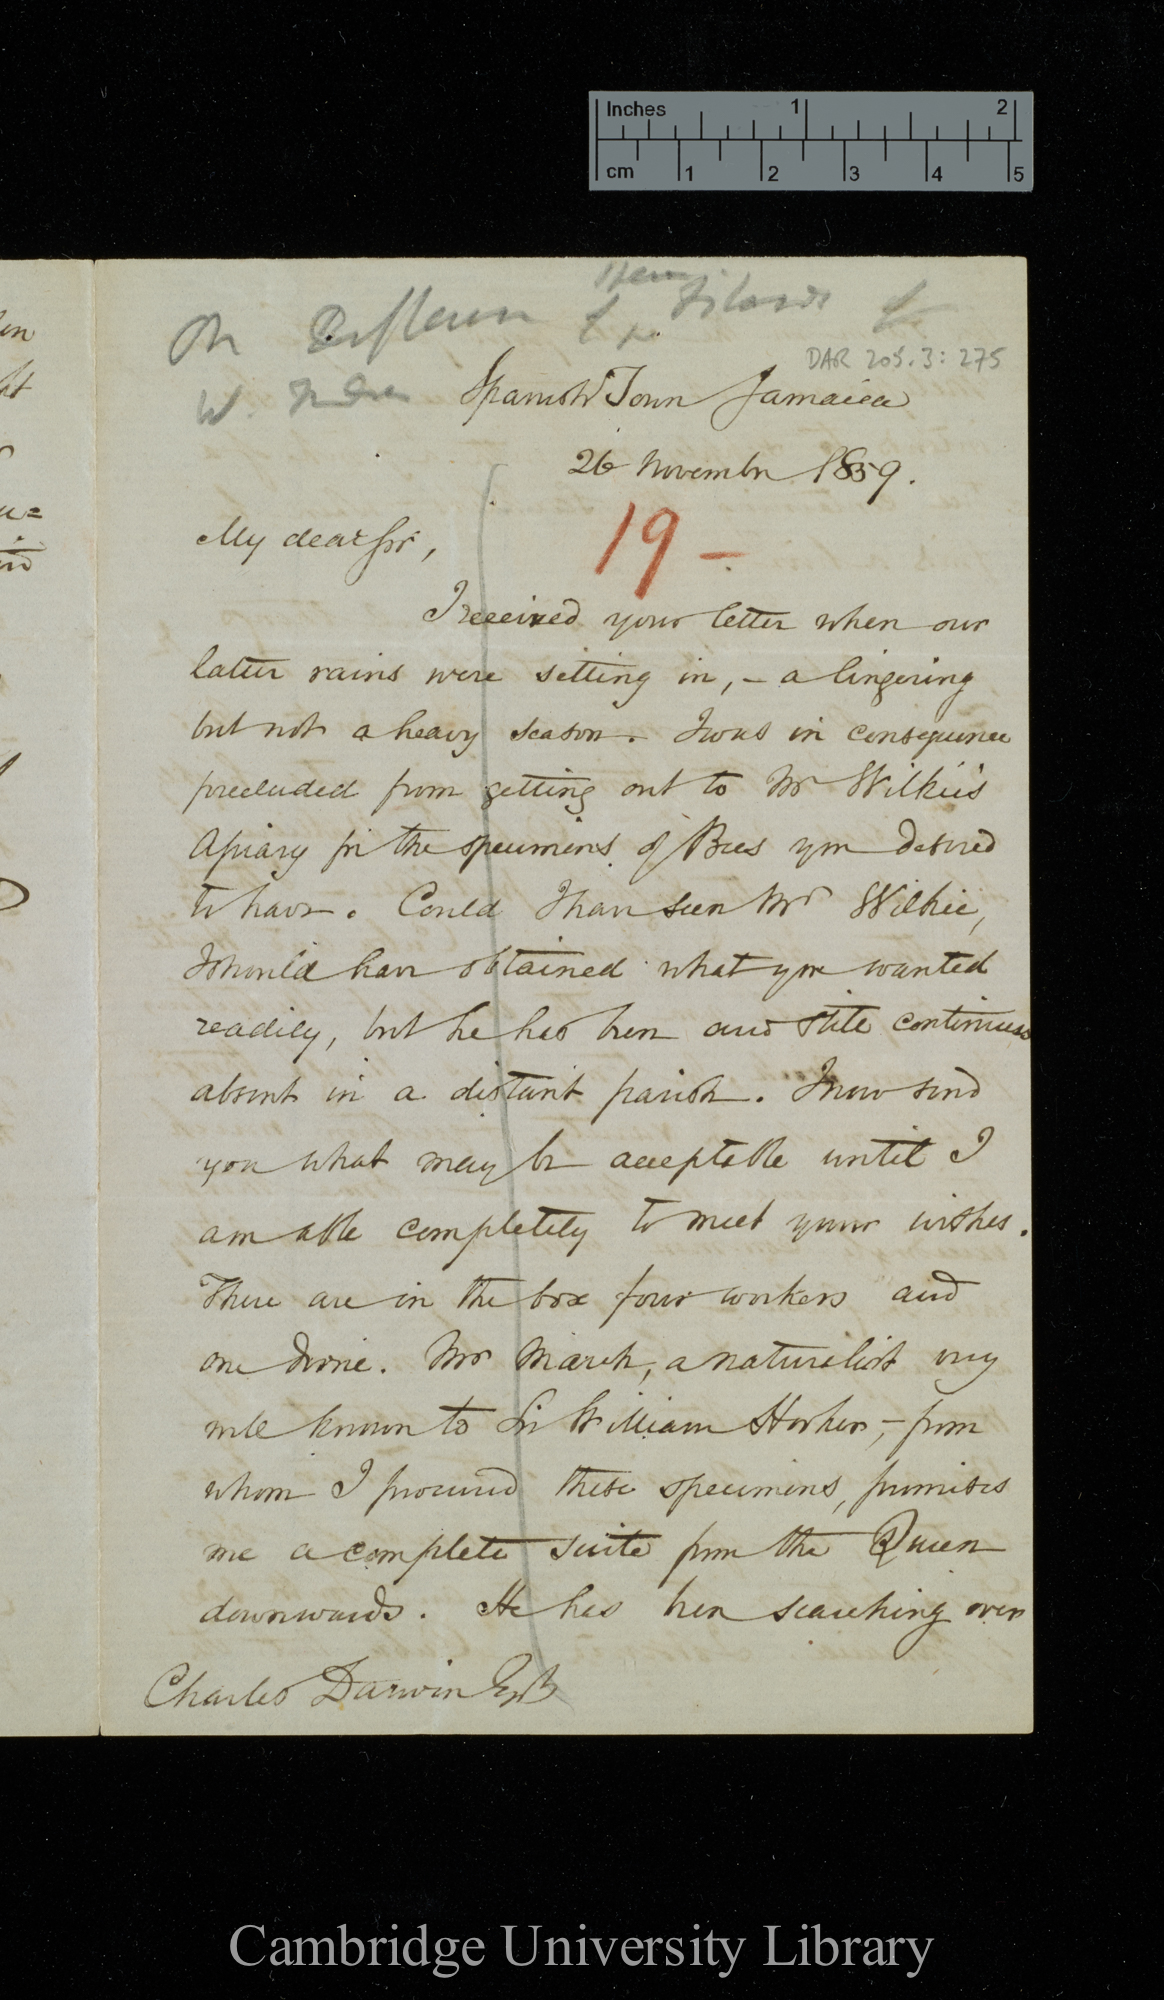 Inches 1 2
cm 1 2 3 4 5
On
DAR 205.3: 275
W. Indies
Spanish Town Jamaica
26 November 1859.
19 –
My dear Sir,
I received your letter when our
latter rains were setting in, – a lingering
but not a heavy season. I was in consequence
precluded from getting out to Mr Wilkie's
Apiary for the specimens of Bees you desired
to have. Could I have seen Mr Wilkie,
I should have obtained what you wanted
readily, but he has been and still continues
absent in a distant parish. I now send
you what may be acceptable until I
am able completely to meet your wishes.
There are in the box four workers and
one drone. Mr March, a naturalist very
well known to Sir William Hooker, – from
whom I procured these specimens, promises
me a complete suite from the Queen
downwards. He has been searching over
Charles Darwin Esqr
Cambridge University Library